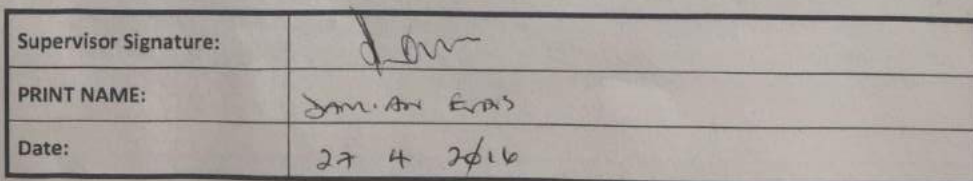 Supervisor Signature:
PRINT NAME:
Date: 27 4 2016